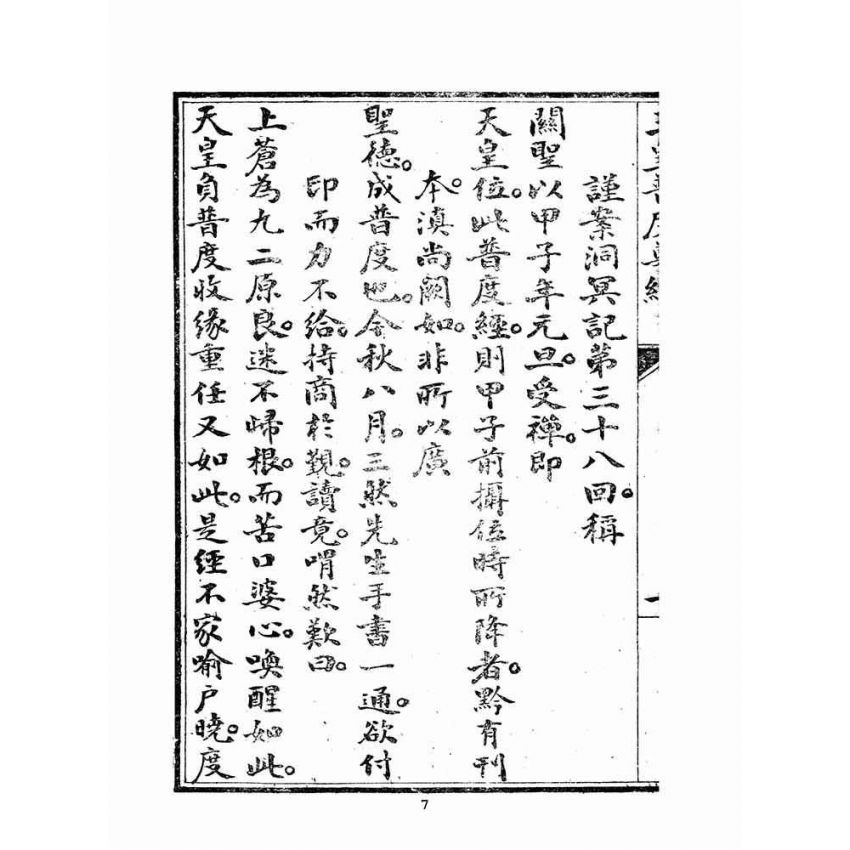 謹案洞冥記第三十八回。稱
關聖以甲子年元旦。受禪。即
天皇位。此普度經。則甲子前攝位時所降者。黔有刊
本。滇尚闕如。非所以廣
聖德。成普度也。今秋八月。三然先生手書一通。欲付
印而力不給。持商於覲。讀竟。喟然歎曰。
上蒼為九二原良。迷不歸根。而苦口婆心。喚醒如此。
天皇負普度收緣重任又如此。是經不家喻戶曉。度
7